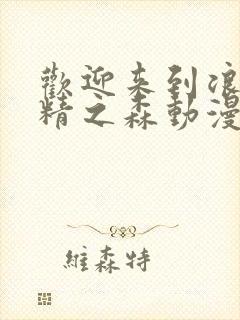 歡迎来到浪
精之森動漫
維森特